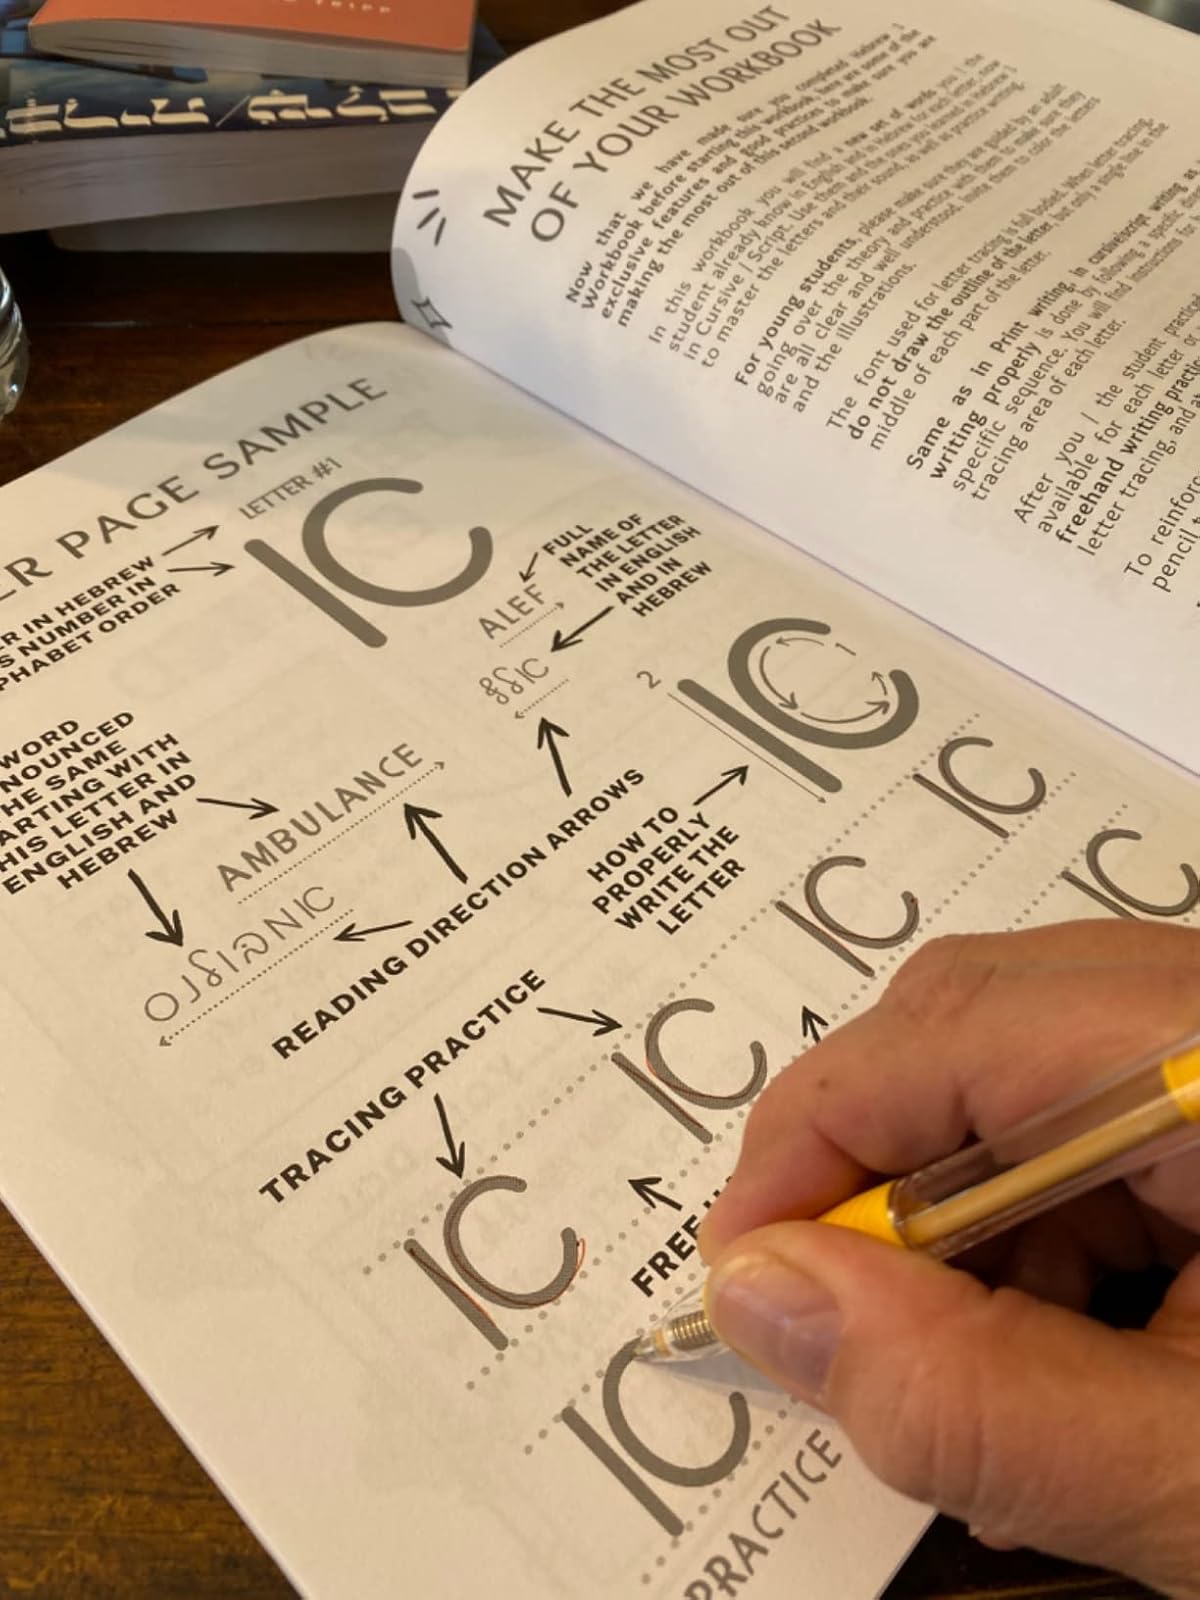 MAKE THE MOST OUT
OF YOUR WORKBOOK
Now that we have made sure you completed Hebrew 1
Workbook before starting this workbook, here are some of the
exclusive features and good practices to make sure you are
making the most out of this second workbook.
In this workbook, you will find a new set of words you / the
student already know in English and in Hebrew for each letter, now
in Cursive / Script. Use them and the ones you learned in Hebrew 1
to master the letters and their sound, as well as practice writing.
For young students, please make sure they are guided by an adult
going over the theory and practice with them to make sure they
are all clear and well understood. Invite them to color the letters
and the illustrations.
The font used for letter tracing is full bodied. When letter tracing,
do not draw the outline of the letter, but only a single line in the
middle of each part of the letter.
Same as in Print writing, in cursive/script writing as
writing properly is done by following a specific
specific sequence. You will find instructions for
tracing area of each letter.
After you / the student practice
available for each letter or
freehand writing practice
letter tracing, and at
To reinforce
pencil
ER PAGE SAMPLE
LETTER #1
א
ER IN HEBREW
S NUMBER IN
PHABET ORDER
FULL
NAME OF
THE LETTER
IN ENGLISH
AND IN
HEBREW
ALEF
אלף
2
1
א
WORD
NOUNCED
HE SAME
ARTING WITH
HIS LETTER IN
ENGLISH AND
HEBREW
AMBULANCE
אמבולנס
READING DIRECTION ARROWS
HOW TO
PROPERLY
WRITE THE
LETTER
TRACING PRACTICE
א א א א
FREE
א א
PRACTICE